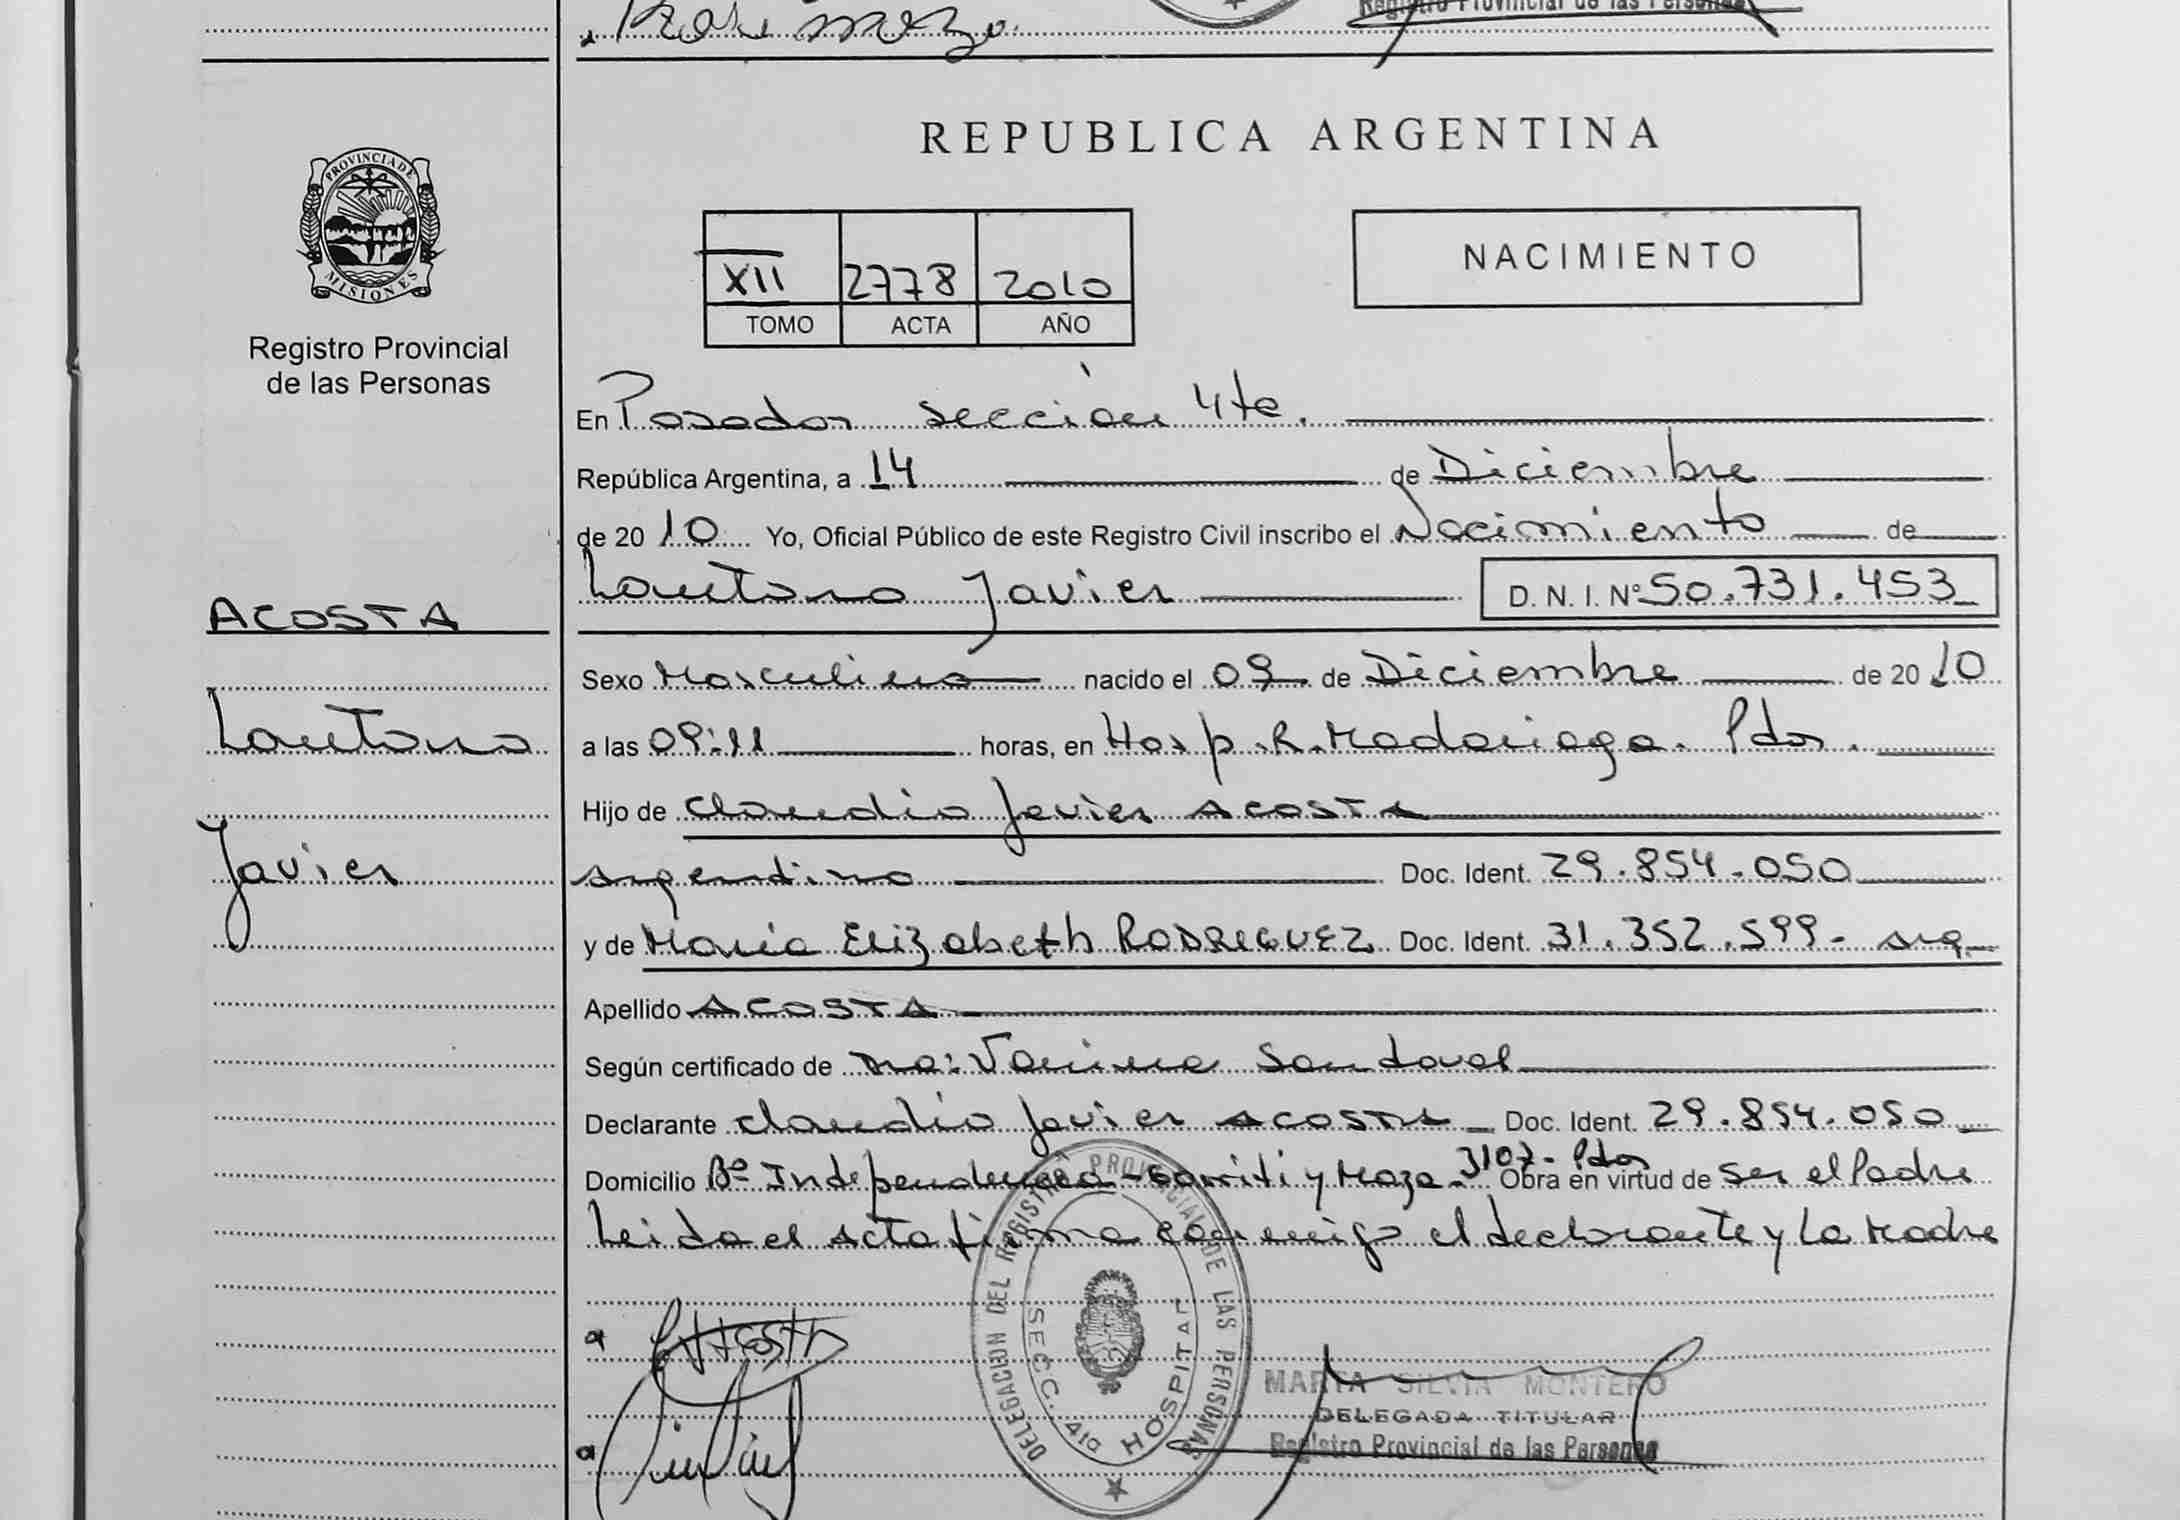 Registro Provincial de las Personas
REPUBLICA ARGENTINA
PROVINCIA DE MISIONES
Registro Provincial
de las Personas
XII 2778 2010
TOMO ACTA AÑO
NACIMIENTO
En Posadas sección 4ta.
República Argentina, a 14 de Diciembre
de 2010 Yo, Oficial Público de este Registro Civil inscribo el Nacimiento de
Lautaro Javier D. N. I. Nº 50.731.453
ACOSTA
Lautaro
Javier
Sexo Masculino nacido el 09 de Diciembre de 2010
a las 09:11 horas, en Hosp. R. Madariaga. Pdas.
Hijo de Claudio Javier ACOSTA
argentino Doc. Ident. 29.854.050
y de María Elizabeth RODRIGUEZ Doc. Ident. 31.352.599- arg.
Apellido ACOSTA
Según certificado de Vanina Sandoval
Declarante Claudio Javier ACOSTA Doc. Ident. 29.854.050
Domicilio Bº Independencia - Gorriti y Maza - 3107- Pdas Obra en virtud de ser el Padre
Leida el acta firma conmigo el declarante y la Madre
DELEGACION DEL REGISTRO PROVINCIAL DE LAS PERSONAS
SECC. 4ta HOSPITAL
MARTA SILVIA MONTERO
DELEGADA TITULAR
Registro Provincial de las Personas